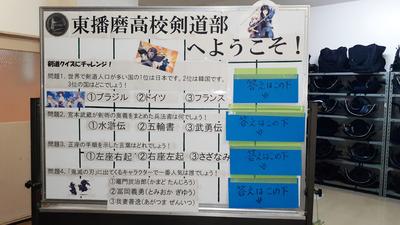 東播磨高校剣道部
へようこそ!
剣道クイズにチャレンジ!
問題1. 世界で剣道人口が多い国の1位は日本です。2位は韓国です。
3位の国はどこでしょう!
①ブラジル ②ドイツ ③フランス
答えはこの下
問題2. 宮本武蔵が剣術の奥義をまとめた兵法書は何でしょう!
①水滸伝 ②五輪書 ③武勇伝
答えはこの下
問題3. 正座の手順を示した言葉はどれでしょう!
①左座右起 ②右座左起 ③さざなみ
答えはこの下
問題4. 「鬼滅の刃」に出てくるキャラクターで一番人気は誰でしょう!
①竈門炭治郎(かまど たんじろう)
②冨岡義勇(とみおか ぎゆう)
③我妻善逸(あがつま ぜんいつ)
答えはこの下